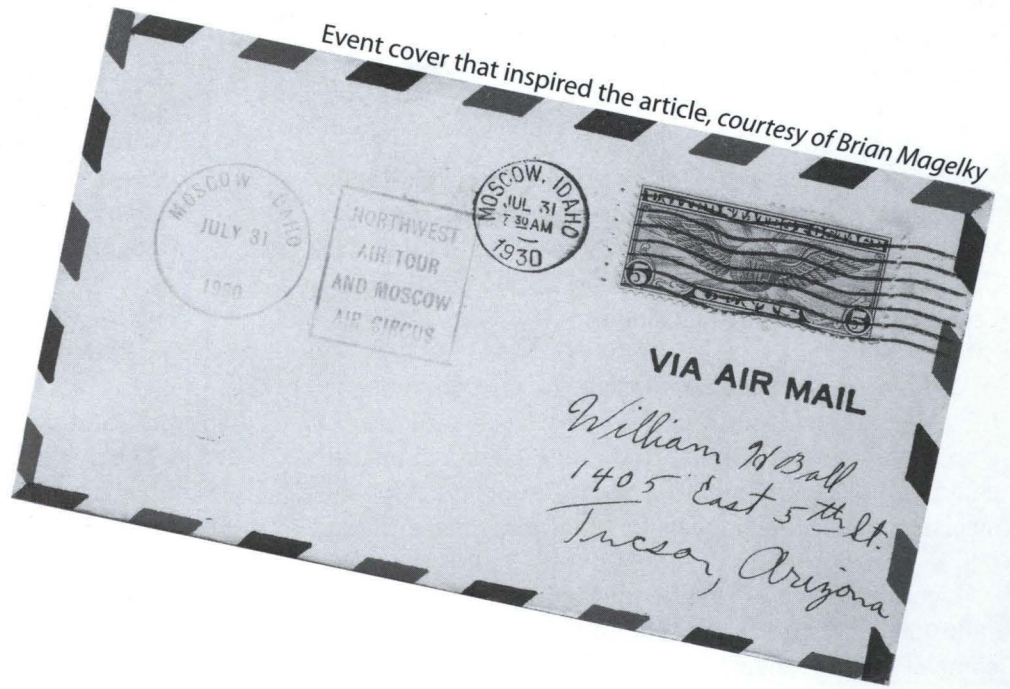 Event cover that inspired the article, courtesy of Brian Magelky
MOSCOW IDAHO
JULY 31
1930
NORTHWEST
AIR TOUR
AND MOSCOW
AIR CIRCUS
MOSCOW, IDAHO
JUL 31
7 30 AM
1930
5 5
VIA AIR MAIL
William H Ball
1405 East 5th St.
Tucson, Arizona